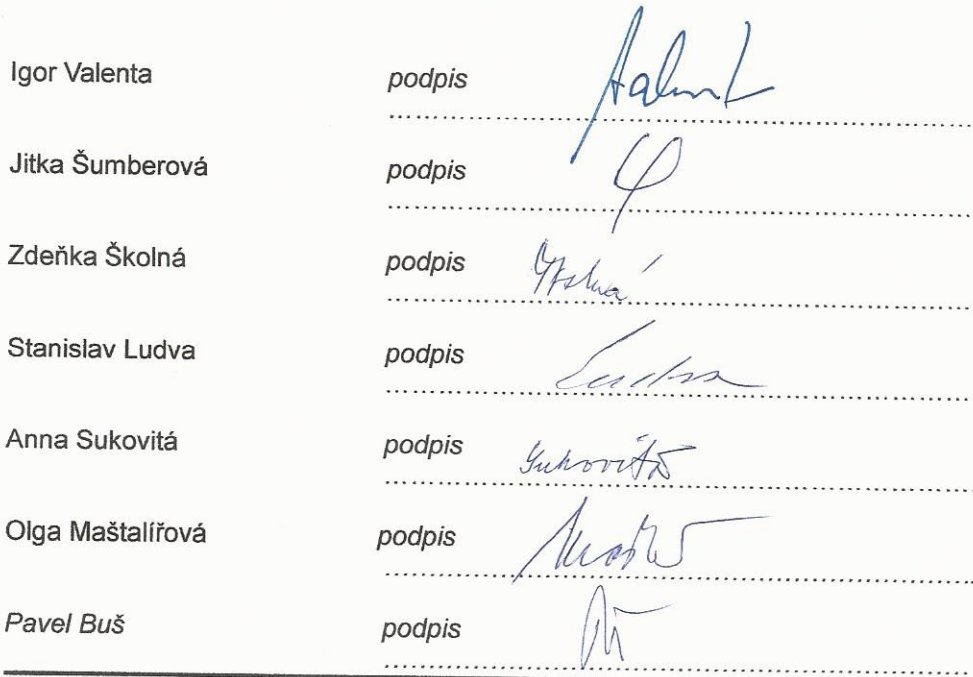 Igor Valenta podpis
Jitka Šumberová podpis
Zdeňka Školná podpis
Stanislav Ludva podpis
Anna Sukovitá podpis Sukovitá
Olga Maštalířová podpis
Pavel Buš podpis